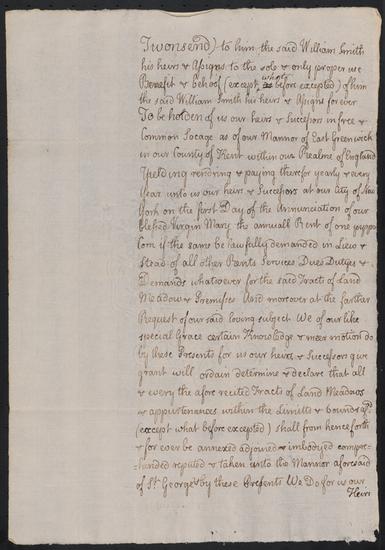 Twonsend) to him the said William Smith
his heirs & Assigns to the sole & only proper use
Benefit & behoof (except what before excepted) of him
the said William Smith his heirs & Assigns for ever
To be holden of us our heirs & Successors in free &
Common Socage as of our Mannor of East Greenwich
in our County of Kent within our Realme of England
Yielding rendering & paying therefor yearly & every
Year unto us our heirs & Successors at our City of New
York on the first Day of the Annunciation of our
blessed Virgin Mary the annuall Rent of one pepper
Corn if the same be lawfully demanded in Lieu &
Stead of all other Rents Services Dues Dutyes &
Demands whatsoever for the said Tracts of Land
Meadow & Premises And moreover at the farther
Request of our said loving subject We of our like
special Grace certain Knowledge & meer motion do
by these Presents for us our heirs & Successors give
grant will ordain determine & declare that all
& every the afore recited Tracts of Land Meadows
& appurtenances within the Limitts & bounds afsd
(except what before excepted) shall from henceforth
& for ever be annexed adjoined & imbodyed compre-
-handed reputed & taken unto the Mannor aforesaid
of St George & by these Presents We Do for us our
Heirs